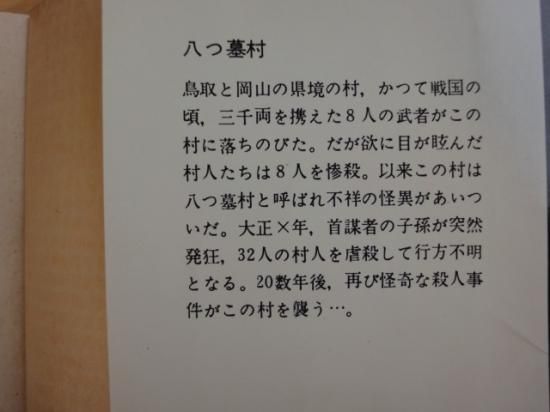 八つ墓村
鳥取と岡山の県境の村，かつて戦国の
頃，三千両を携えた８人の武者がこの
村に落ちのびた。だが欲に目が眩んだ
村人たちは８人を惨殺。以来この村は
八つ墓村と呼ばれ不祥の怪異があいつ
いだ。大正×年，首謀者の子孫が突然
発狂，32人の村人を虐殺して行方不明
となる。20数年後，再び怪奇な殺人事
件がこの村を襲う…。